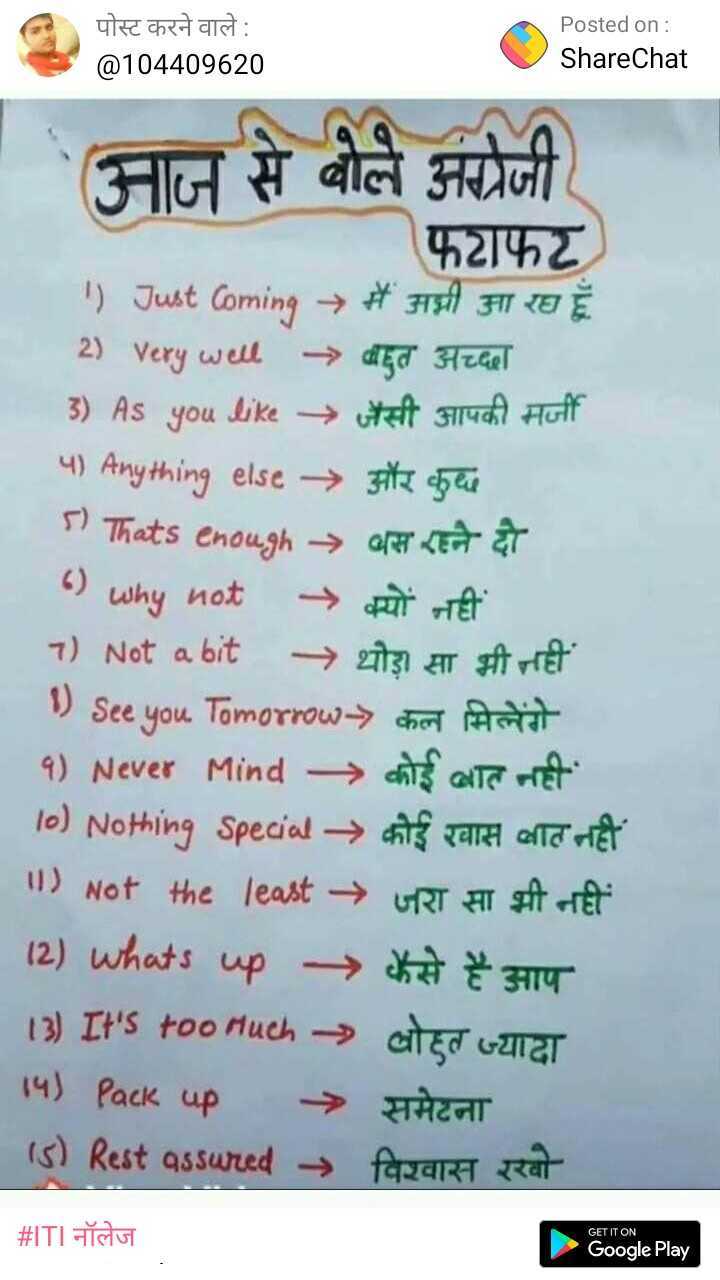 पोस्ट करने वाले :
@104409620
Posted on :
ShareChat
आज से बोले अंग्रेजी
फटाफट
1) Just Coming → मैं अभी आ रहा हूँ
2) Very well → बहुत अच्छा
3) As you like → जैसी आपकी मर्जी
4) Anything else → और कुछ
5) Thats enough → बस रहने दो
6) why not → क्यों नहीं
7) Not a bit → थोड़ा सा भी नहीं
8) See you Tomorrow → कल मिलेंगे
9) Never Mind → कोई बात नहीं
10) Nothing Special → कोई खास बात नहीं
11) Not the least → जरा सा भी नहीं
12) whats up → कैसे है आप
13) It's too Much → बोहुत ज्यादा
14) Pack up → समेटना
15) Rest assured → विश्वास रखो
#ITI नॉलेज
GET IT ON
Google Play